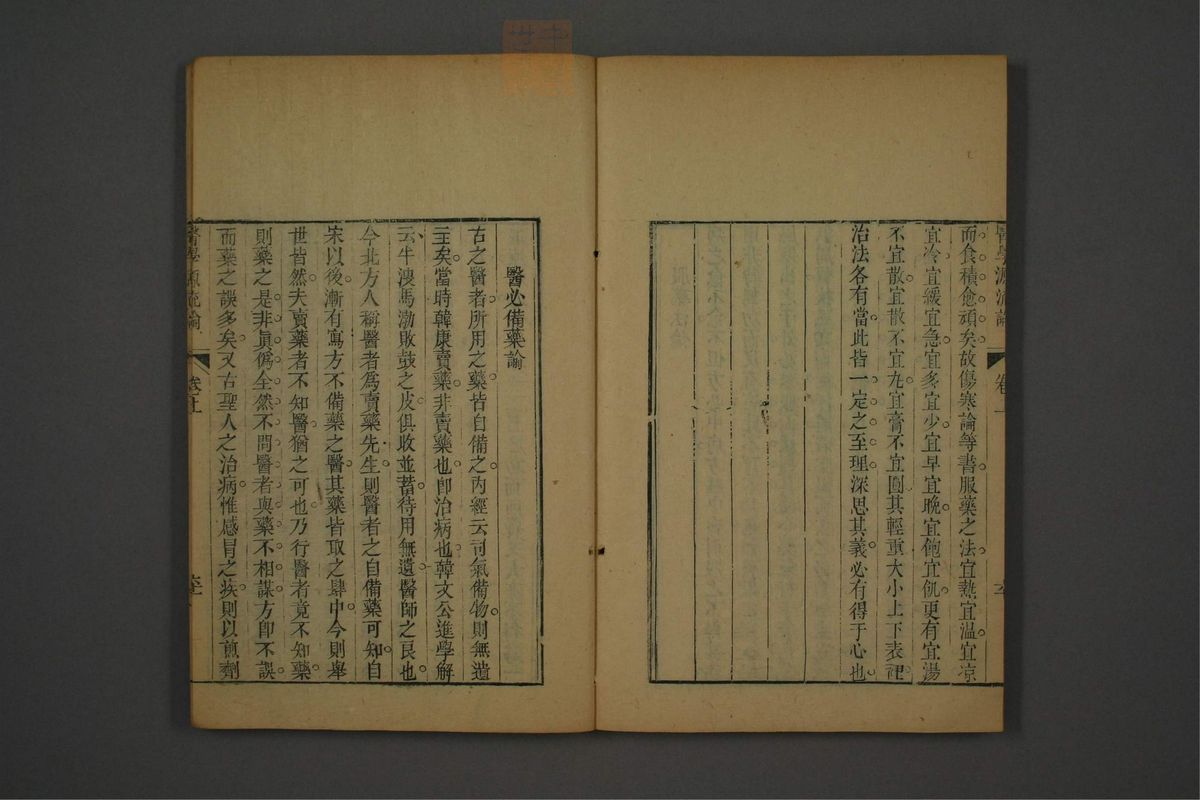 醫學源流論
卷上
而食積愈頑矣故傷寒論等書服藥之法宜熱宜温宜凉
宜冷宜緩宜急宜多宜少宜早宜晚宜飽宜飢更有宜湯
不宜散宜散不宜丸宜膏不宜圓其輕重大小上下表裡
治法各有當此皆一定之至理深思其義必有得于心也
醫必備藥論
古之醫者所用之藥皆自備之内經云司氣備物則無遺
主矣當時韓康賣藥非賣藥也卽治病也韓文公進學解
云牛溲馬渤敗鼓之皮俱收並蓄待用無遺醫師之良也
今北方人稱醫者爲賣藥先生則醫者之自備藥可知自
宋以後漸有寫方不備藥之醫其藥皆取之肆中今則舉
世皆然夫賣藥者不知醫猶之可也乃行醫者竟不知藥
則藥之是非眞僞全然不問醫者與藥不相謀方卽不誤
而藥之誤多矣又古聖人之治病惟感冒之疾則以煎劑
醫學源流論
卷上